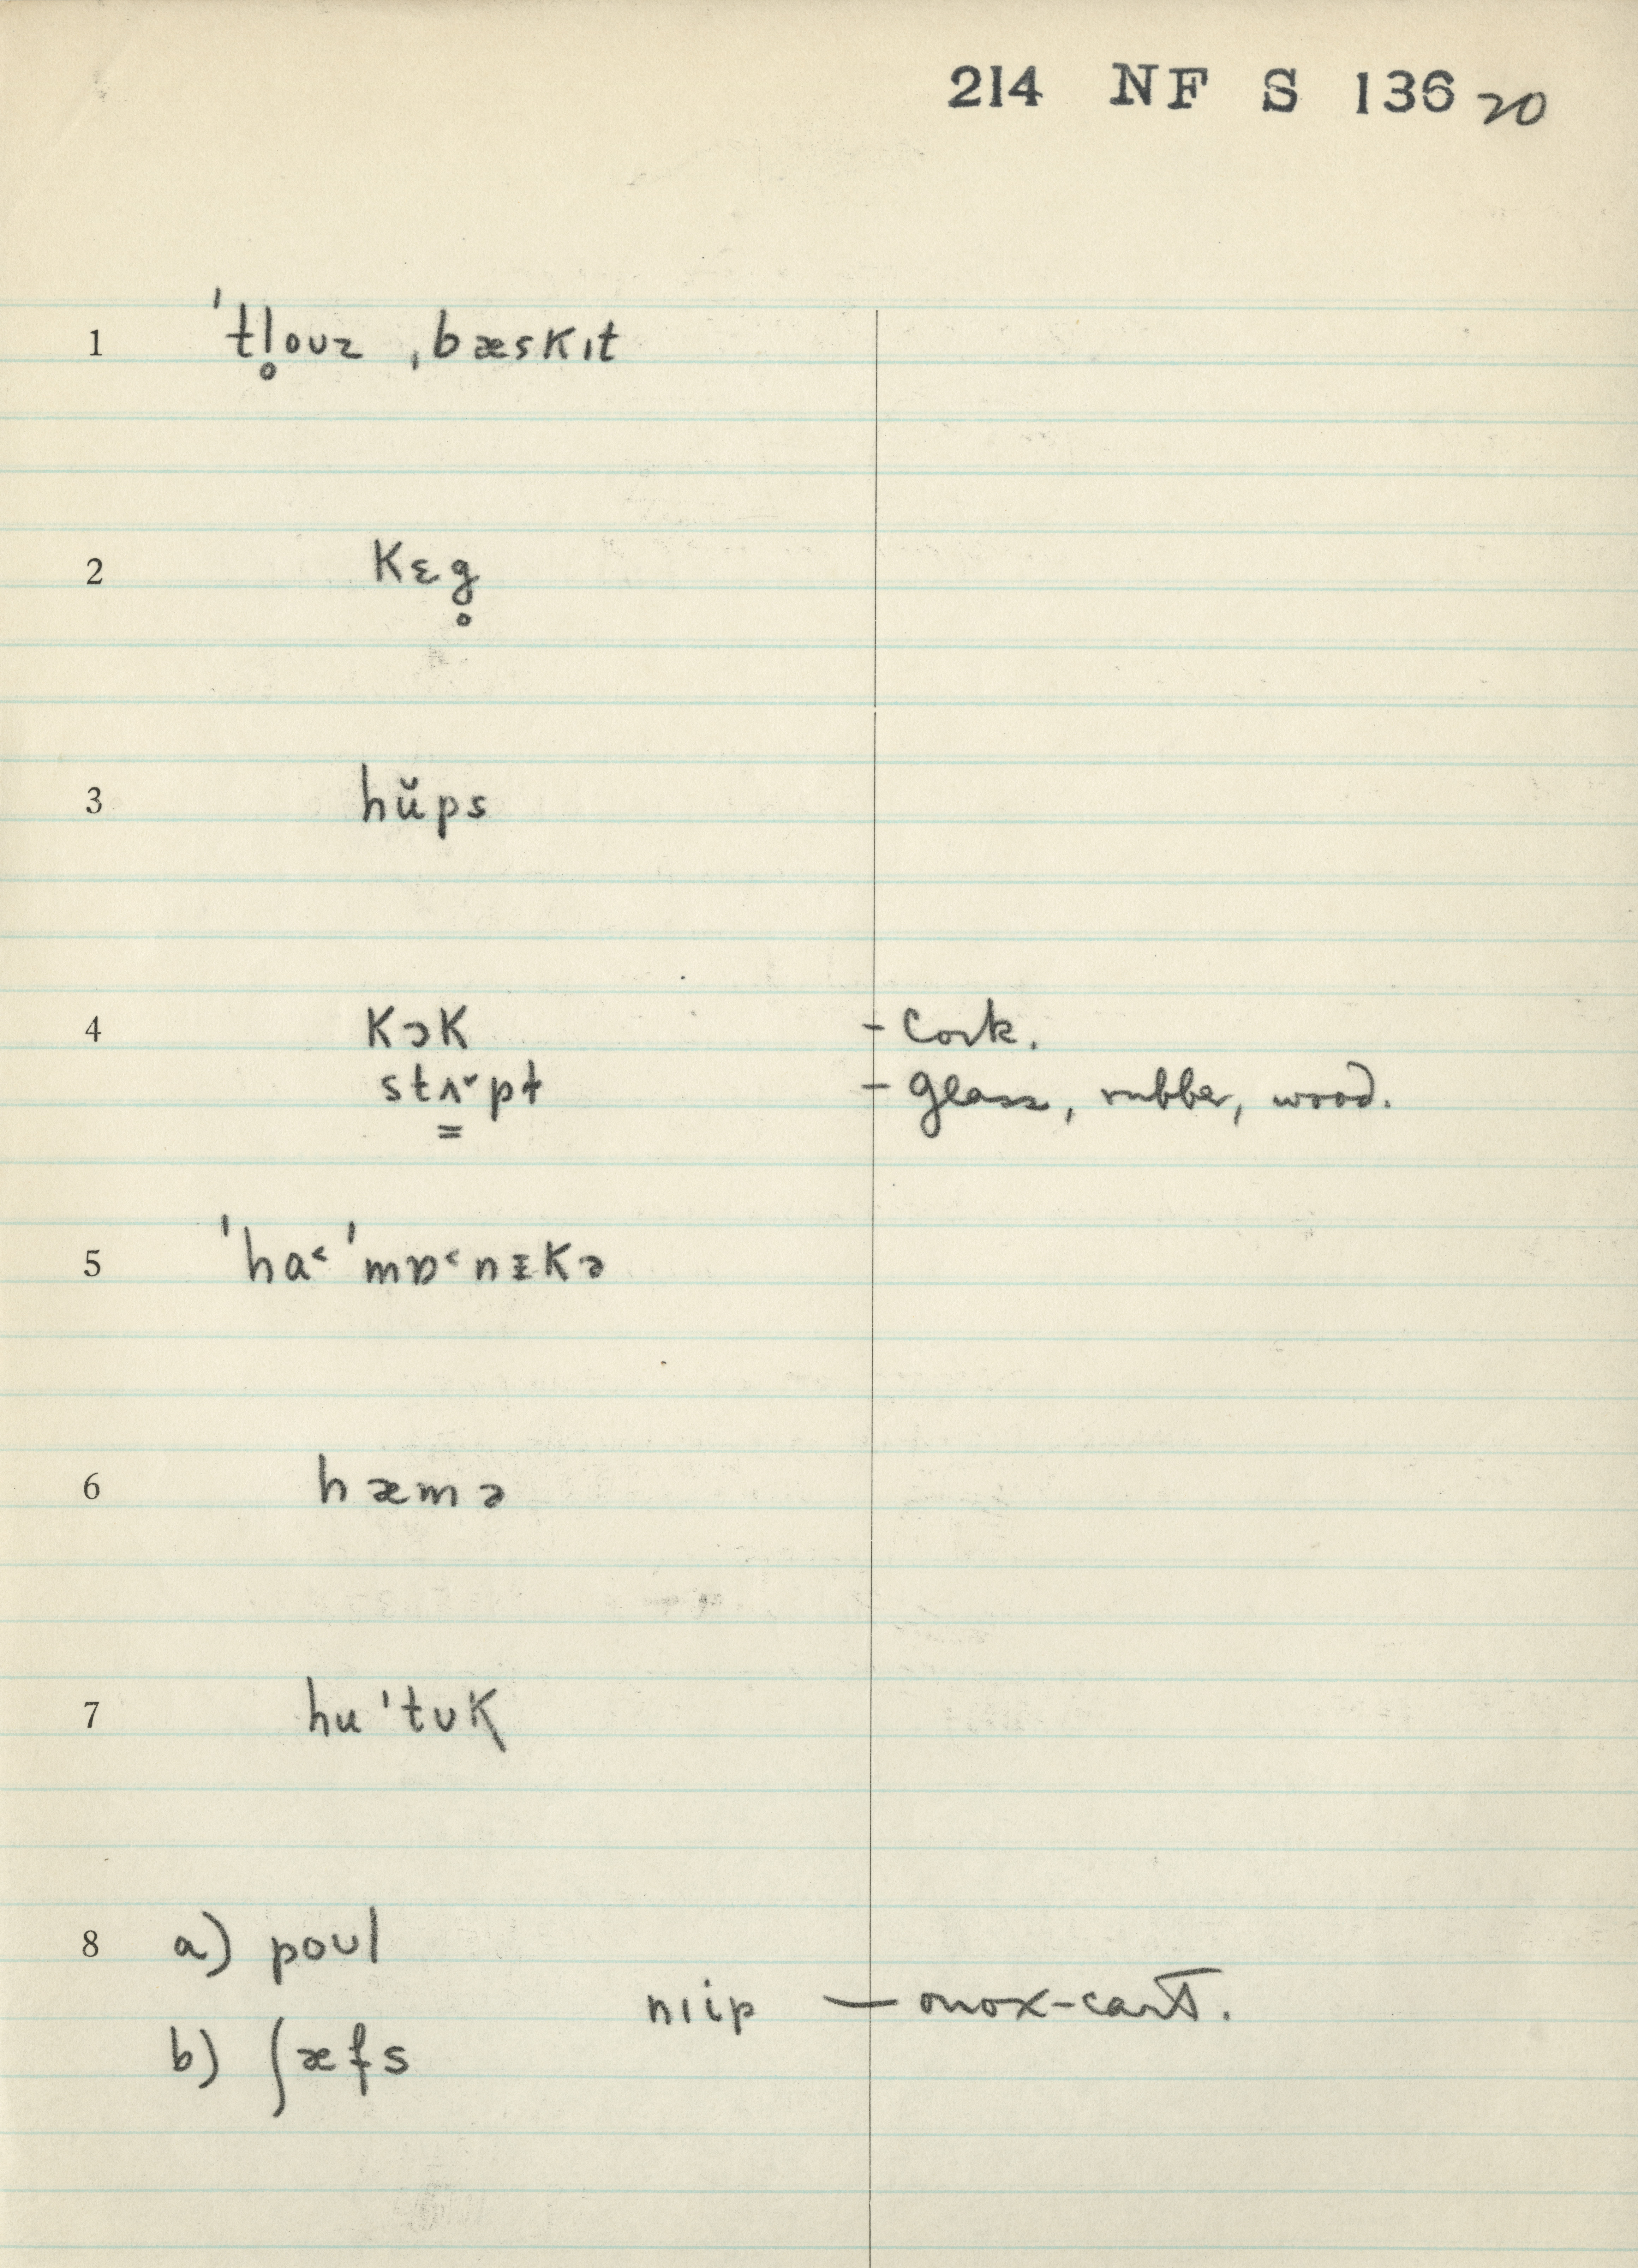 214 NF S 136 20
1 ˈtl̥oʊz ˌbæskɪt
2 kɛg̥
3 hŭps
4 kɔk - Cork.
stʌ˅pt - glass, rubber, wood.
5 ˈha˂ ˈmɒ˂nɪkə
6 hæmə
7 huˈtʊk
8 a) poʊl
nɪip — on ox-cart.
b) ʃæfs